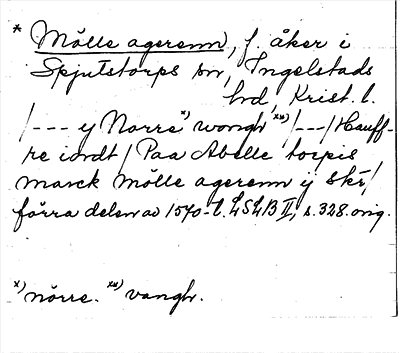 * Mölle agerenn, f. åker i
Spjutstorps sn, Ingelstads
hd, Krist. l.
/--- y Norre x) wongh xx) /---/ Hauff-
re iordt / Paa Abelle torpis
marck mölle agerenn ij Skr/
förra delen av 1540-t. LSLB II, s. 328. orig.
x) nörre. xx) vangh.